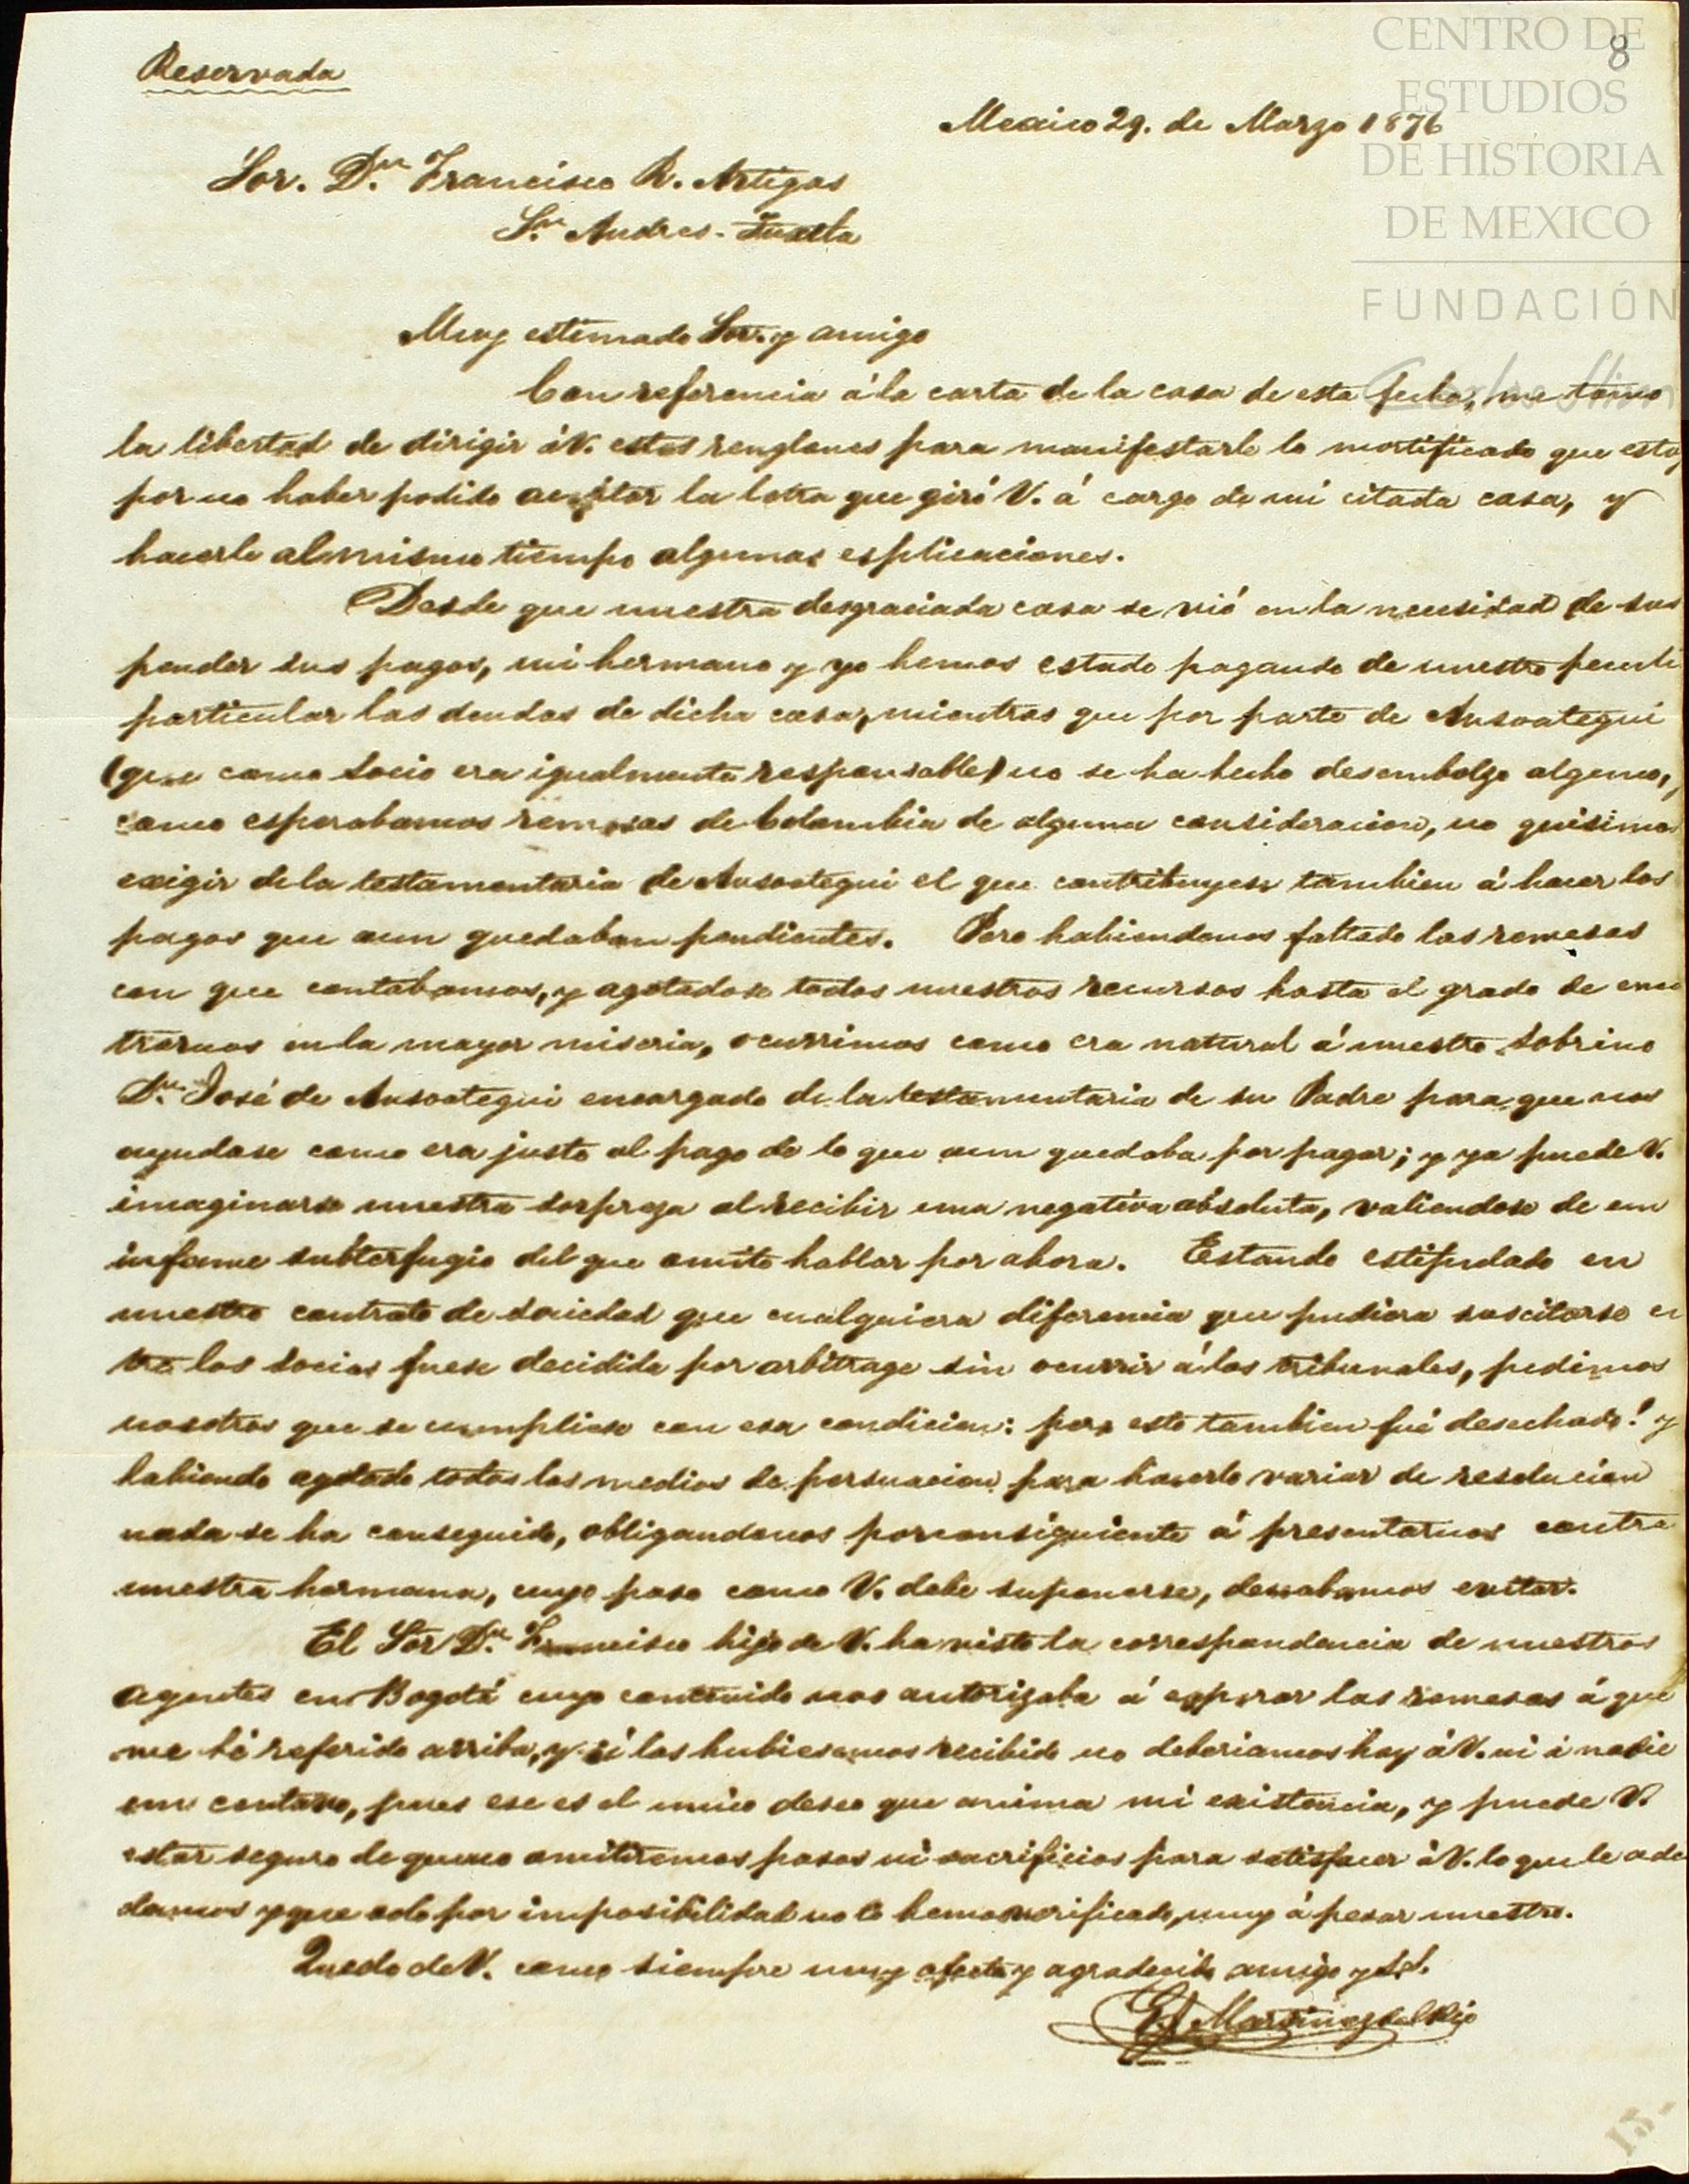 8
CENTRO DE
ESTUDIOS
DE HISTORIA
DE MEXICO
FUNDACIÓN
Carlos Slim
Reservada
Mexico 29. de Marzo 1876
Sor. Dn. Francisco R. Artigas
Sn. Andres-Tuxtla
Muy estimado Sor. y amigo
Con referencia á la carta de la casa de esta fecha, me tomo
la libertad de dirigir á V. estos renglones para manifestarle lo mortificado que estoy
por no haber podido aceptar la letra que giró V. á cargo de mi citada casa, y
hacerle al mismo tiempo algunas esplicaciones.
Desde que nuestra desgraciada casa se vió en la necesidad de sus
pender sus pagos, mi hermano y yo hemos estado pagando de nuestro peculi
particular las deudas de dicha casa, mientras que por parte de Ansoategui
(que como socio era igualmente responsable) no se ha hecho desembolzo alguno,
como esperabamos remesas de Colombia de alguna consideracion, no quisimos
exigir de la testamentaria de Ansoategui el que contribuyese tambien á hacer los
pagos que aun quedaban pendientes. Pero habiendonos faltado las remesas
con que contabamos, y agotadose todos nuestros recursos hasta el grado de enco
trarnos en la mayor miseria, ocurrimos como era natural á nuestro sobrino
Dn. José de Ansoategui encargado de la testamentaria de su Padre para que nos
ayudase como era justo al pago de lo que aun quedaba por pagar; y ya puede V.
imaginarse nuestra sorpreza al recibir una negativa absoluta, valiendose de un
infame subterfugio del que omito hablar por ahora. Estando estipulado en
nuestro contrato de sociedad que cualquiera diferencia que pudiera suscitarse en
tre los socios fuese decidida por arbitrage sin ocurrir á los tribunales, pedimos
nosotros que se cumpliese con esa condicion: pero esto tambien fué desechado! y
habiendo agotado todos los medios de persuacion para hacerlo variar de resolucion
nada se ha conseguido, obligandonos por consiguiente á presentarnos contra
nuestra hermana, cuyo paso como V. debe suponerse, deseabamos evitar.
El Sor Dn. Francisco hijo de V. ha visto la correspondencia de nuestros
agentes en Bogotá cuyo contenido nos autorizaba á esperar las remesas á que
me hé referido arriba, y si las hubiesemos recibido no deberiamos hoy á V. ni á nadie
un centavo, pues ese es el unico deseo que anima mi existencia, y puede V.
estar seguro de que no omitiremos pasos ni sacrificios para satisfacer á V. lo que le ade
damos y que solo por imposibilidad no lo hemos verificado, muy á pesar nuestro.
Quedo de V. como siempre muy afecto y agradecido amigo y S.S.
Martinez del Rio
15-